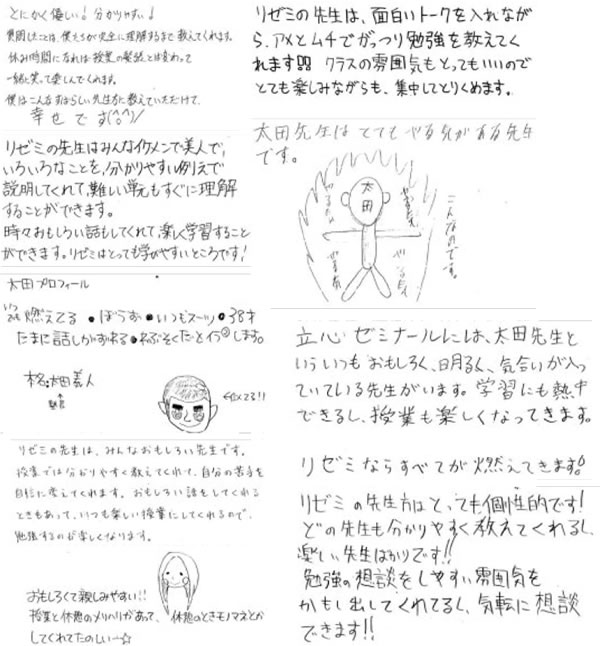 とにかく優しい！分かりやすい！
質問したことは、僕たちが完全に理解するまで教えてくれます。
休み時間になれば授業の緊張とは変わって
一緒に笑って楽しんでくれます。
僕はこんなすばらしい先生方に教えていただけて、
幸せです(^o^)/
リゼミの先生はみんなイケメンで美人で、
いろいろなことを、分かりやすい例えで
説明してくれて、難しい単元もすぐに理解
することができます。
時々おもしろい話もしてくれて、楽しく学習すること
ができます。リゼミはとっても学びやすいところです！
太田プロフィール
いつも燃えてる ●ぼうず ●いつもスーツ ●38才
たまに話しがずれる ●ねぶそくだとイライラします。
本名:太田義人
リゼミの先生は、みんなおもしろい先生です。
授業では分かりやすく教えてくれて、自分の苦手を
自信に変えてくれます。おもしろい話をしてくれる
ときもあって、いつも楽しい授業にしてくれるので、
勉強するのが楽しくなります。
おもしろくて親しみやすい!!
授業と休憩のメリハリがあって、休憩のときモノマネとか
してくれてたのしいー☆
リゼミの先生は、面白いトークを入れなが
ら、アメとムチでがっつり勉強を教えてく
れます!! クラスの雰囲気もとってもいいので
とても楽しみながらも、集中してとりくめます。
太田先生はとてもやる気がある先生
です。
太田
こんなのです。
立心ゼミナールには、太田先生と
いういつもおもしろく、明るく、気合いが入っ
ていている先生がいます。学習にも熱中
できるし、授業も楽しくなってきます。
リゼミならすべてが燃えてきます。
リゼミの先生方はとっても個性的です!
どの先生も分かりやすく教えてくれるし、
楽しい先生ばかりです!!
勉強の相談をしやすい雰囲気を
かもし出してくれてるし、気転に相談
できます!!